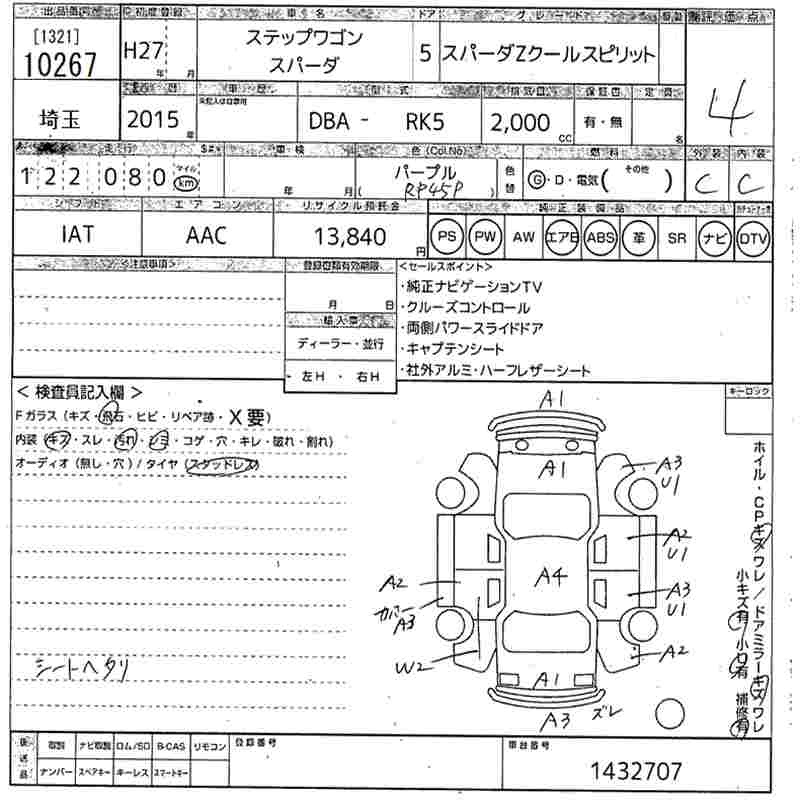 出品番号 初度登録 車名 ドア グレード 評価点
[1321]
10267 H27 年 月 ステップワゴン スパーダ 5 スパーダZクールスピリット 4
車歴 型式 排気量 保証書 定員
埼玉 2015年 未記入は自家用 DBA - RK5 2,000 CC 有・無 名
走行 車検 色(Col.No) 燃料 外装 内装
122080 マイル km 年 月 パープル ( RP45P ) 色替 G・D・電気( その他 ) C C
シフト エアコン リサイクル預託金 純正装備品
IAT AAC 13,840 円 PS PW AW エアB ABS 革 SR ナビ DTV
<注意事項> 登録書類有効期限 <セールスポイント>
月 日
輸入車
ディーラー・並行
左H・右H
・純正ナビゲーションTV
・クルーズコントロール
・両側パワースライドドア
・キャプテンシート
・社外アルミ・ハーフレザーシート
<検査員記入欄> キーロック
Fガラス(キズ・飛石・ヒビ・リペア跡・X要)
内装(キズ・スレ・汚れ・シミ・コゲ・穴・キレ・破れ・割れ)
オーディオ(無し・穴)/タイヤ(スタッドレス)
シートヘタリ
A1
A1
A3
U1
A2
U1
A4
A2
A3
U1
カバー
A3
W2
A2
A1
A3 ズレ
ホイル・CPキズワレ/ドアミラーキズワレ
小キズ有 小凹有 補修有
後送品 取説 ナビ取説 ロム/SD B-CAS リモコン 登録番号 車台番号
ナンバー スペアキー キーレス スマートキー 1432707